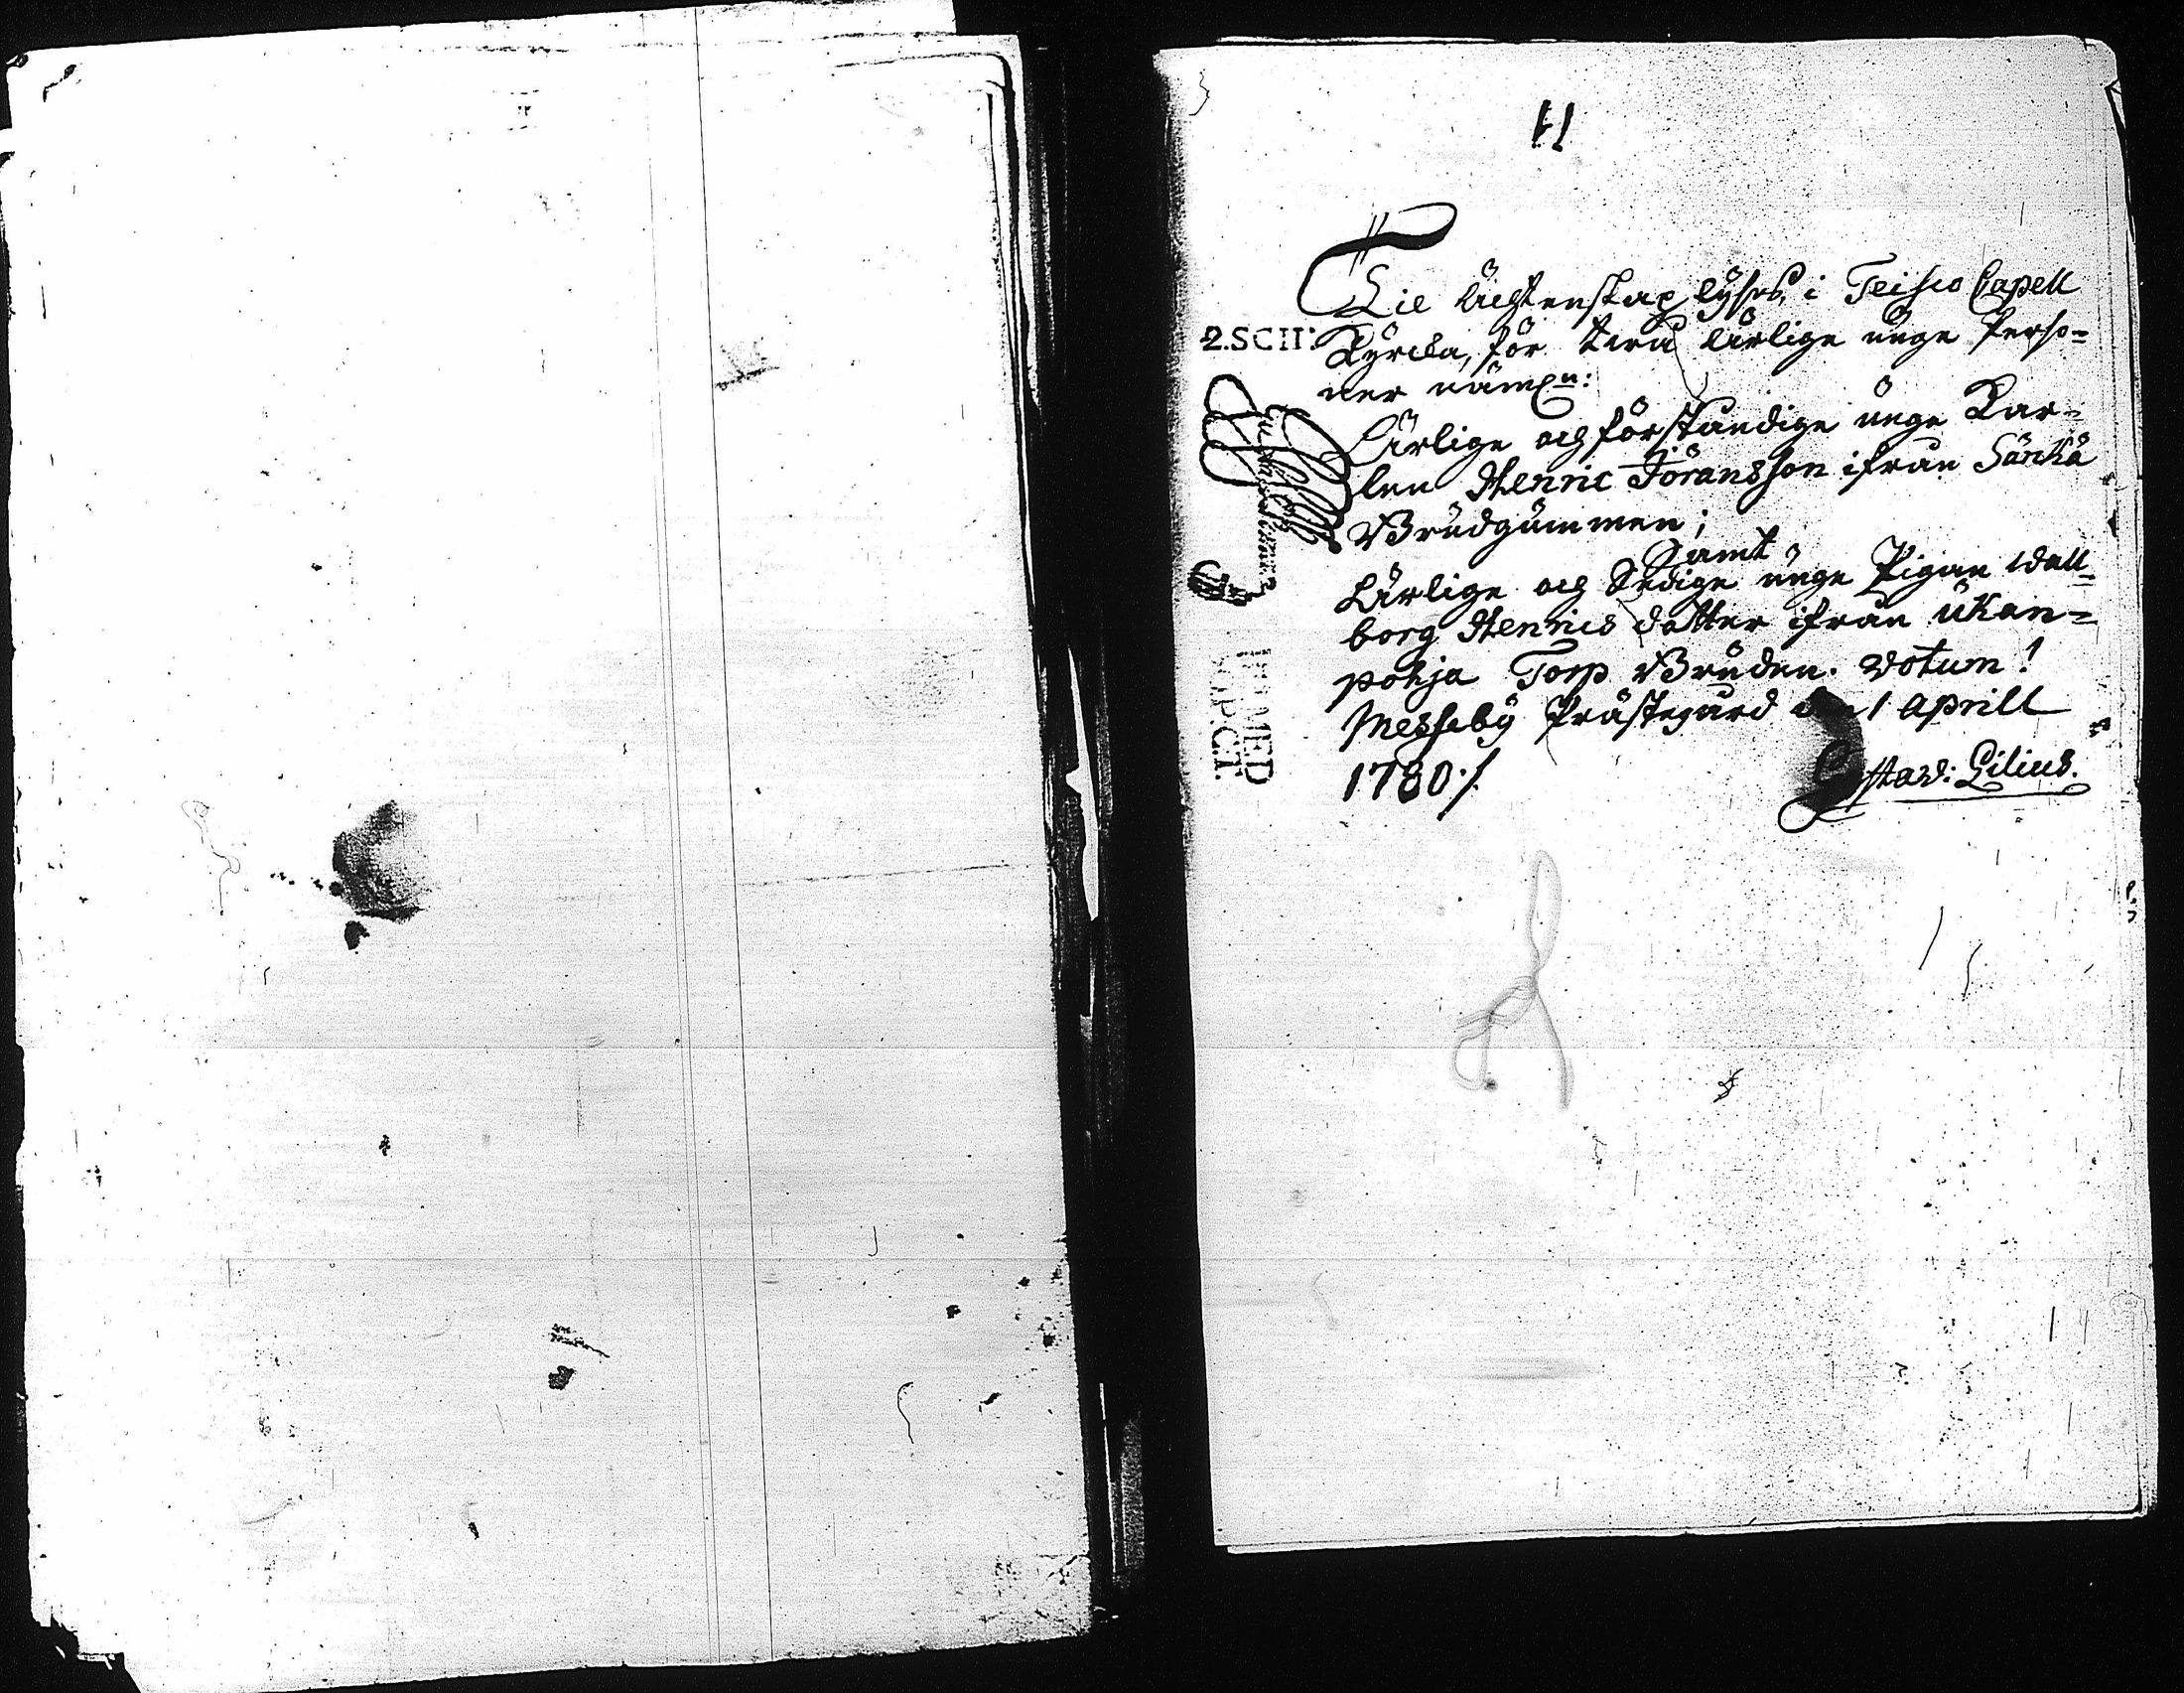 11
Til Ächtenskap lyses, i Teisco Capell
2.SCH:
Kyrcka, för twå ärlige unge Perso=
ner näml:n:
Ärlige och förståndige unge Kar=
len Henric Jöransson ifrån Särkä
Brudgummen;
Samt
Ärlige och Sedige unge Pigan Wall=
borg Henrics dotter ifrån Ukan=
pohja Torp Bruden. Votum!
Messeby Prästegård den 1 Aprill
1780./.
Gustav: Lilius.